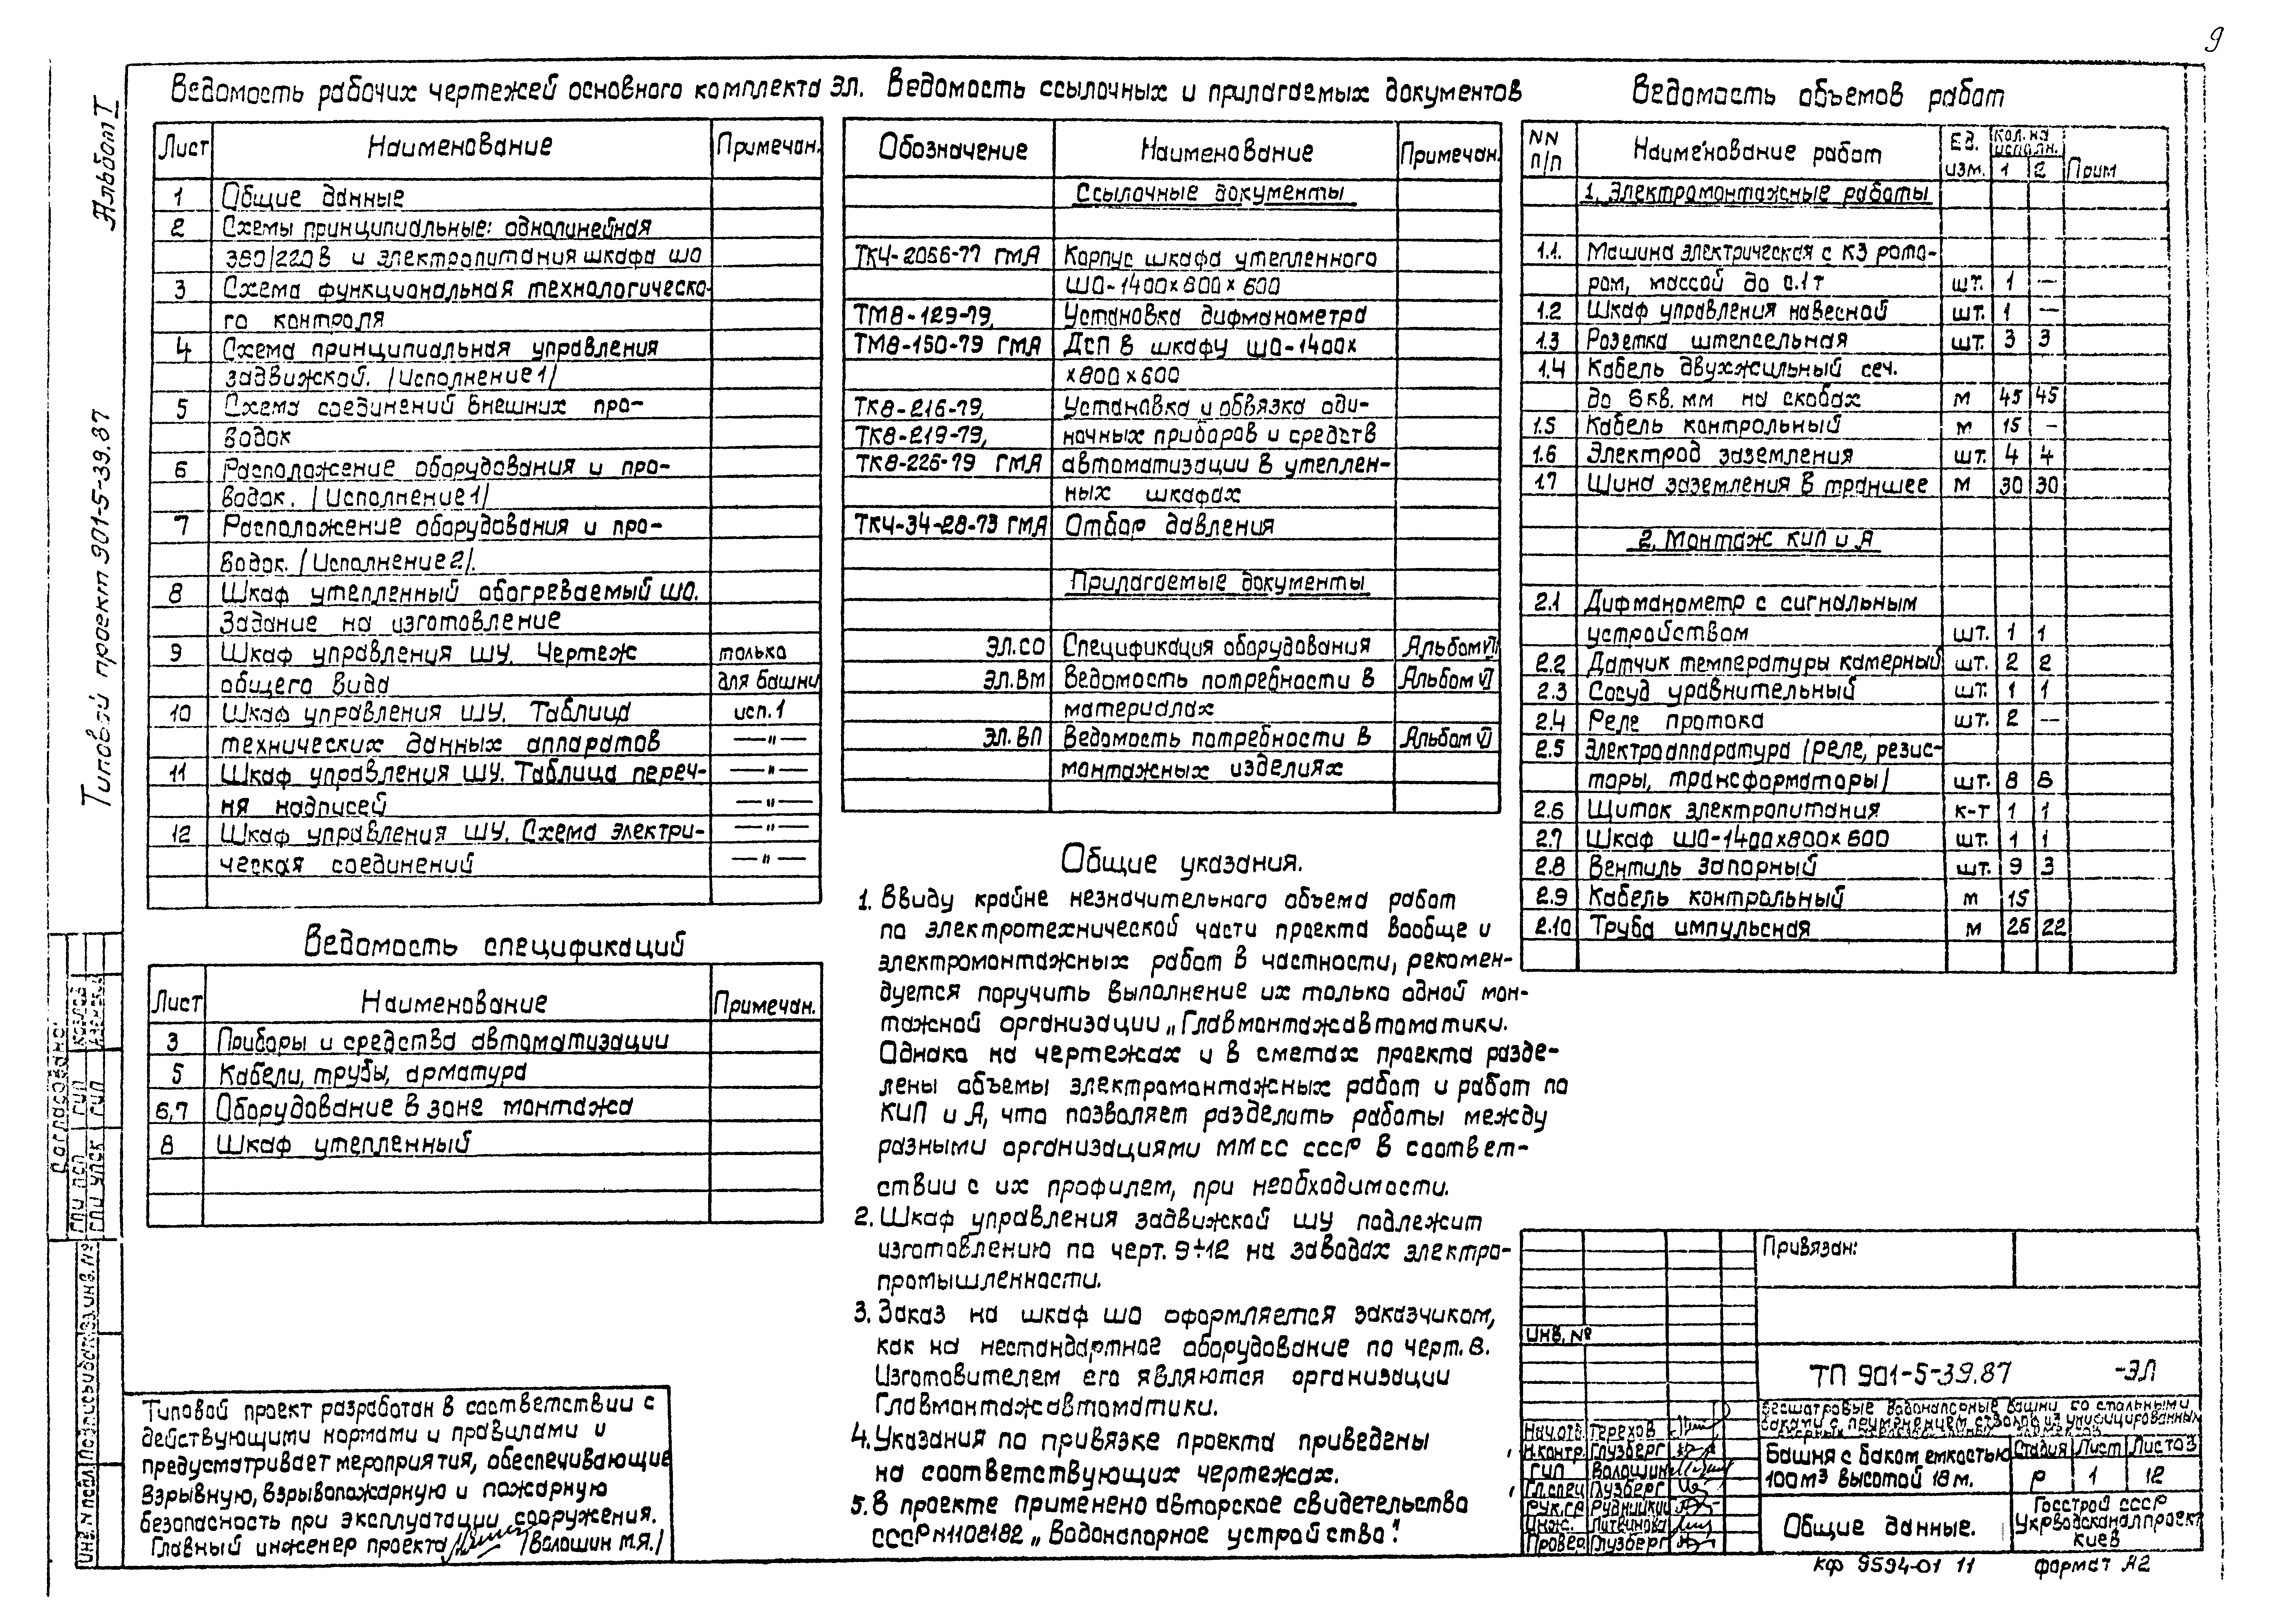 9
Альбом I
Типовой проект 901-5-39.87
Ведомость рабочих чертежей основного комплекта ЭЛ.
Лист Наименование Примечан.
1 Общие данные
2 Схемы принципиальные: однолинейная
380/220В и электропитания шкафа ШО
3 Схема функциональная технологическо-
го контроля
4 Схема принципиальная управления
задвижкой. /Исполнение 1/
5 Схема соединений внешних про-
водок
6 Расположение оборудования и про-
водок. /Исполнение 1/
7 Расположение оборудования и про-
водок. /Исполнение 2/.
8 Шкаф утепленный обогреваемый ШО.
Задание на изготовление
9 Шкаф управления ШУ. Чертеж только
общего вида для башни
10 Шкаф управления ШУ. Таблица исп. 1
технических данных аппаратов —"—
11 Шкаф управления ШУ. Таблица переч- —"—
ня надписей —"—
12 Шкаф управления ШУ. Схема электри- —"—
ческая соединений —"—
Ведомость спецификаций
Лист Наименование Примечан.
3 Приборы и средства автоматизации
5 Кабели, трубы, арматура
6,7 Оборудование в зоне монтажа
8 Шкаф утепленный
Типовой проект разработан в соответствии с
действующими нормами и правилами и
предусматривает мероприятия, обеспечивающие
взрывную, взрывопожарную и пожарную
безопасность при эксплуатации сооружения.
Главный инженер проекта /Волошин М.Я./
Ведомость ссылочных и прилагаемых документов
Обозначение Наименование Примечан.
Ссылочные документы
ТК4-2056-77 ГМА Корпус шкафа утепленного
ШО-1400х800х600
ТМ8-129-79, Установка дифманометра
ТМ8-150-79 ГМА ДСП в шкафу ШО-1400х
х800х600
ТК8-216-79, Установка и обвязка оди-
ТК8-219-79, ночных приборов и средств
ТК8-225-79 ГМА автоматизации в утеплен-
ных шкафах
ТК4-34-28-73 ГМА Отбор давления
Прилагаемые документы
ЭЛ.СО Спецификация оборудования Альбом VII
ЭЛ.ВМ Ведомость потребности в Альбом VI
материалах
ЭЛ.ВП Ведомость потребности в Альбом VI
монтажных изделиях
Общие указания.
1. Ввиду крайне незначительного объема работ
по электротехнической части проекта вообще и
электромонтажных работ в частности, рекомен-
дуется поручить выполнение их только одной мон-
тажной организации „Главмонтажавтоматики.
Однако на чертежах и в сметах проекта разде-
лены объемы электромонтажных работ и работ по
КИП и А, что позволяет разделить работы между
разными организациями ММСС СССР в соответ-
ствии с их профилем, при необходимости.
2. Шкаф управления задвижкой ШУ подлежит
изготовлению по черт. 9÷12 на заводах электро-
промышленности.
3. Заказ на шкаф ШО оформляется заказчиком,
как на нестандартное оборудование по черт. 8.
Изготовителем его являются организации
Главмонтажавтоматики.
4. Указания по привязке проекта приведены
на соответствующих чертежах.
5. В проекте применено авторское свидетельство
СССР №1108182 „Водонапорное устройство".
Ведомость объемов работ
NN п/п Наименование работ Ед. изм. Кол. на исполн. 1 2 Прим
1. Электромонтажные работы
1.1. Машина электрическая с КЗ рото-
ром, массой до 0.1т шт. 1 —
1.2 Шкаф управления навесной шт. 1 —
1.3 Розетка штепсельная шт. 3 3
1.4 Кабель двухжильный сеч.
до 6 кв. мм на скобах м 45 45
1.5 Кабель контрольный м 15 -
1.6 Электрод заземления шт. 4 4
1.7 Шина заземления в траншее м 30 30
2. Монтаж КИП и А
2.1 Дифманометр с сигнальным
устройством шт. 1 1
2.2 Датчик температуры камерный шт. 2 2
2.3 Сосуд уравнительный шт. 1 1
2.4 Реле протока шт. 2 —
2.5 Электроаппаратура /реле, резис-
торы, трансформаторы/ шт. 8 6
2.6 Щиток электропитания к-т 1 1
2.7 Шкаф ШО-1400х800х600 шт. 1 1
2.8 Вентиль запорный шт. 9 3
2.9 Кабель контрольный м 15
2.10 Труба импульсная м 25 22
Привязан:
Инв. №
ТП 901-5-39.87 -ЭЛ
Бесшатровые водонапорные башни со стальными
баками с применением стволов из унифицированных
Нач.отд. Терехов
Н.контр. Глузберг
ГИП Волошин
Гл.спец Глузберг
Рук.гр. Рудницкий
Инж. Литвинова
Провер Глузберг
Башня с баком емкостью
100м3 высотой 18м.
Стадия Лист Листов
Р 1 12
Общие данные.
Госстрой СССР
Укрводоканалпроект
Киев
КФ 9594-01 11 формат А2
Согласовано:
ГПИ ПСП ГИП
ГПИ УПСК ГИП
Инв. N подл. Подпись и дата Взам. инв. №